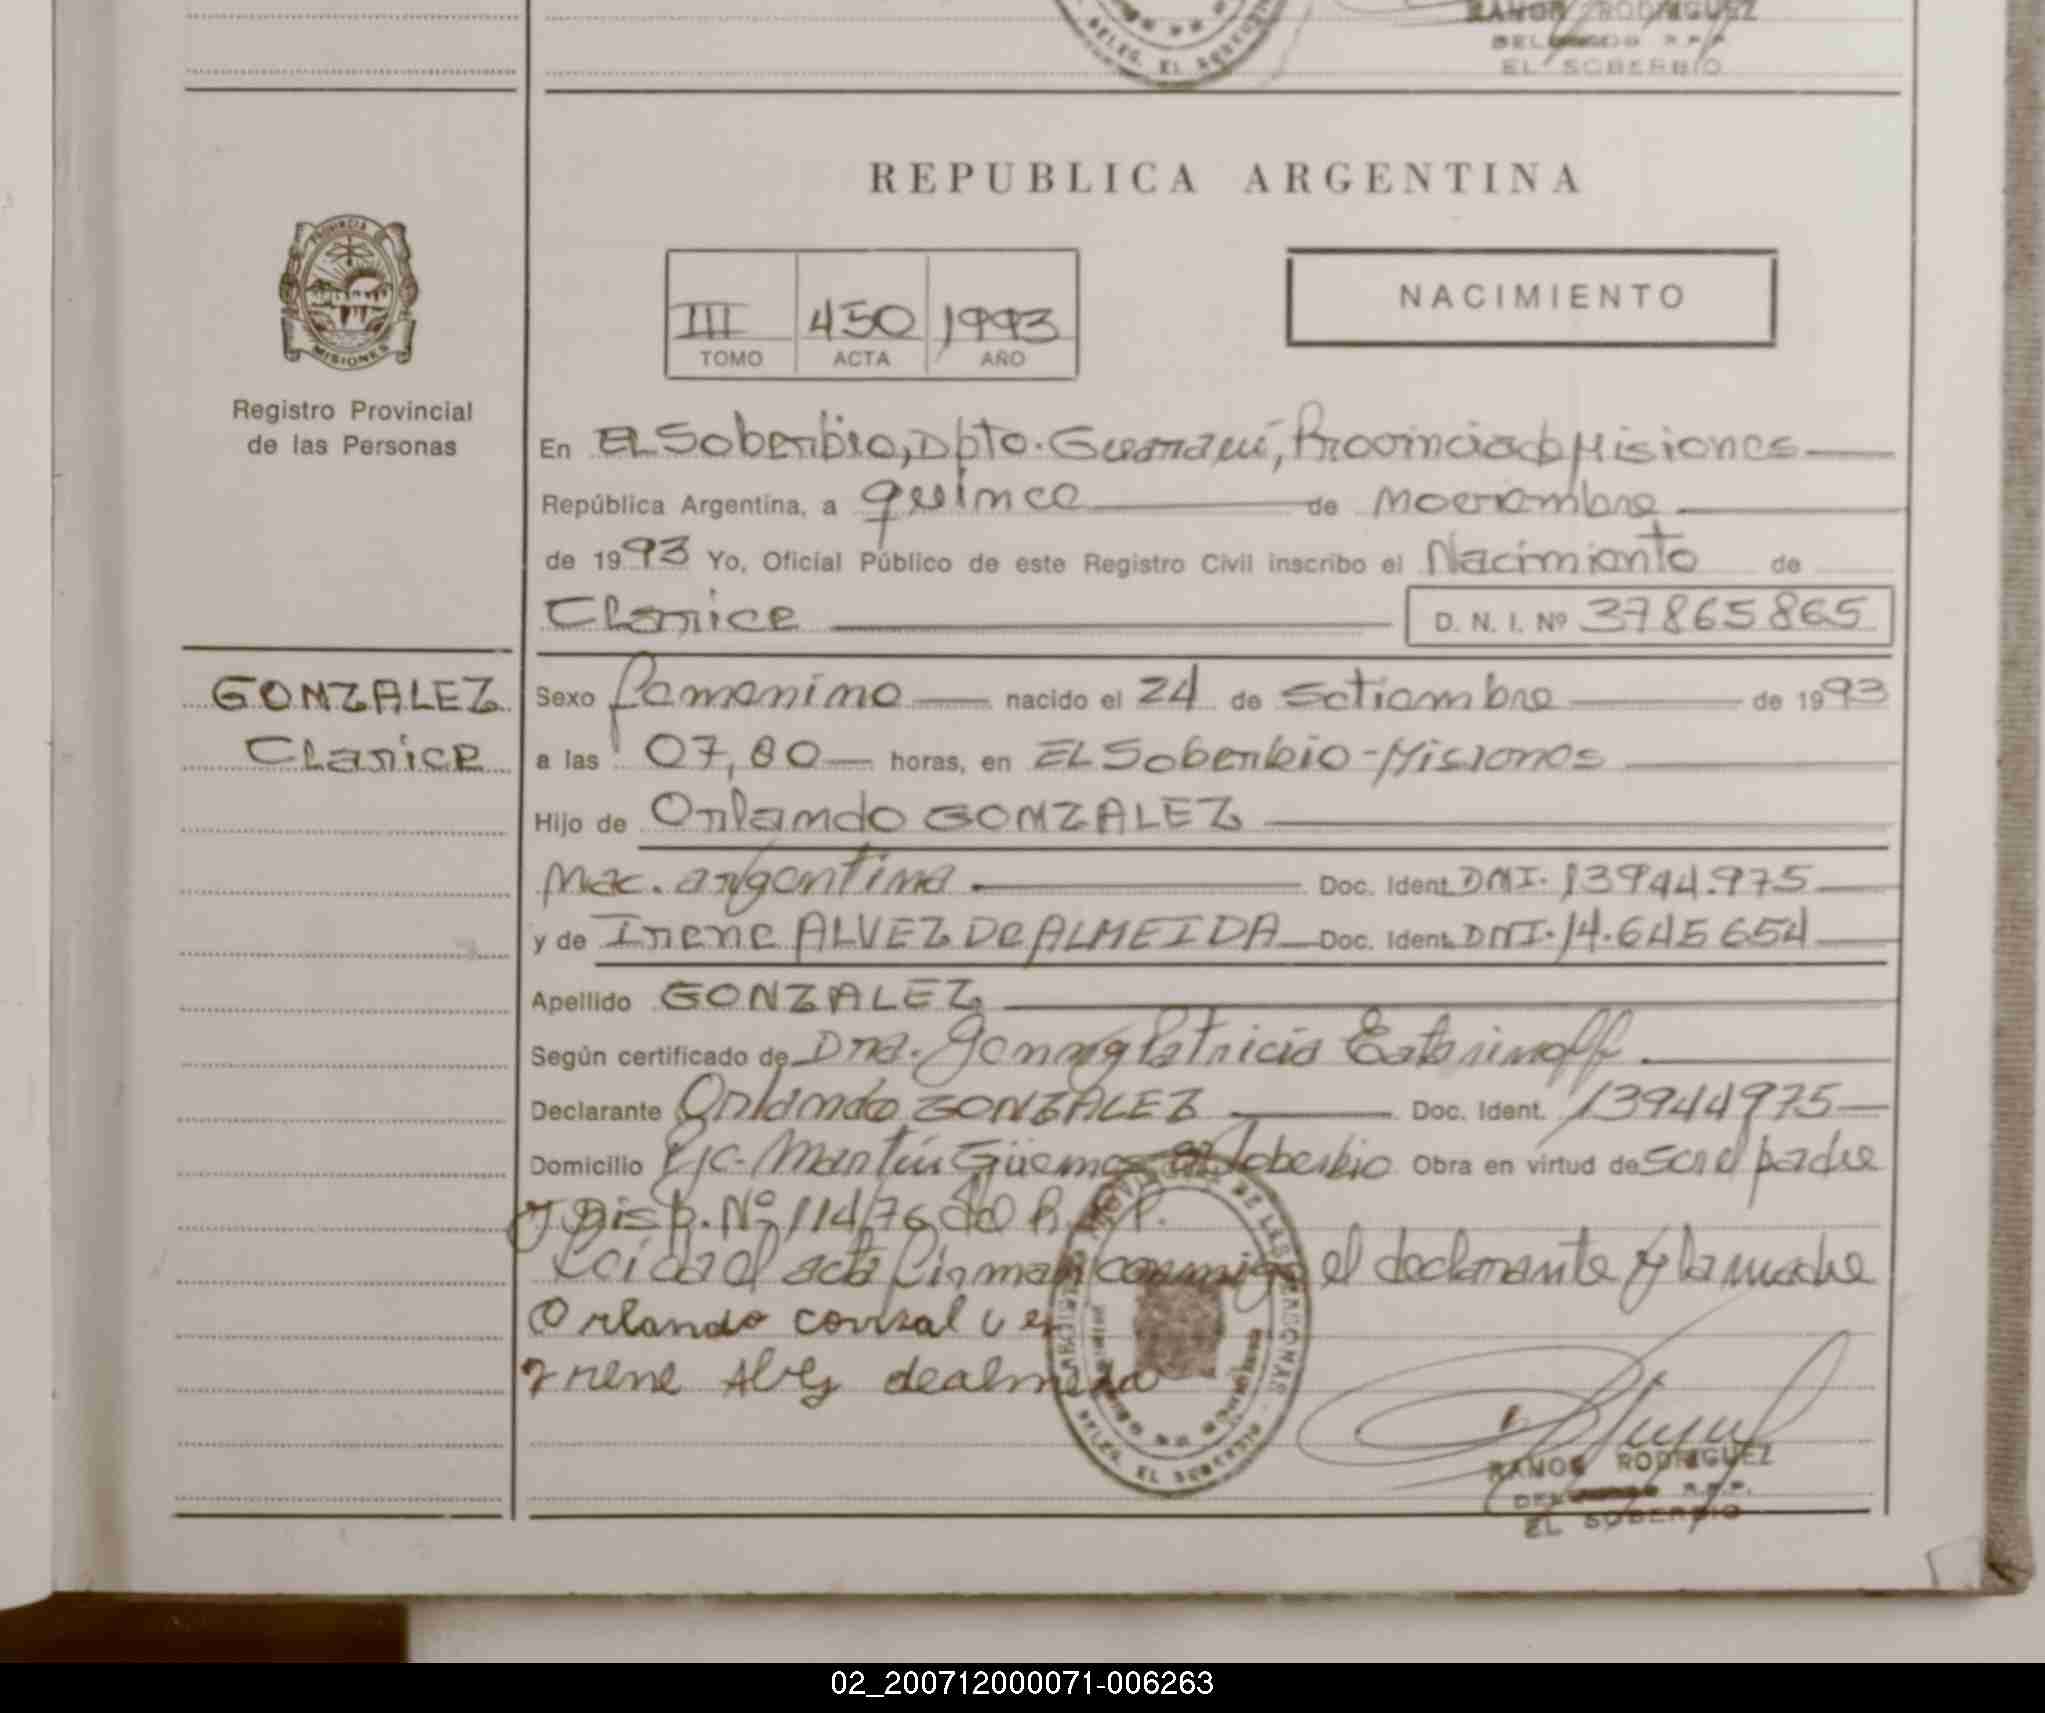 RAMOS RODRIGUEZ
EL SOBERBIO
REPUBLICA ARGENTINA
PROVINCIA
MISIONES
Registro Provincial
de las Personas
III 450 1993
TOMO ACTA AÑO
NACIMIENTO
En EL Soberbio, Dpto. Guaraní, Provincia de Misiones
República Argentina, a quince de noviembre
de 1993 Yo, Oficial Público de este Registro Civil inscribo el Nacimiento de
Clarice D. N. I. Nº 37865865
GONZALEZ
Clarice
Sexo femenino nacido el 24 de setiembre de 1993
a las 07,00 horas, en EL Soberbio - Misiones
Hijo de Orlando GONZALEZ
Nac. argentina Doc. Ident. DNI. 13944.975
y de Irene ALVEZ De ALMEIDA Doc. Ident. DNI. 14.645654
Apellido GONZALEZ
Según certificado de Dra. Patricia
Declarante Orlando GONZALEZ Doc. Ident. 13944975
Domicilio Pje. Martín Güemes El Soberbio Obra en virtud de ser el padre
y Disp. Nº 114/76 del R. P. P.
Leída el acta firman conmigo el declarante y la madre
Orlando
Irene Alvez dealmeida
DELEG. EL SOBERBIO
RAMOS RODRIGUEZ
R.P.P.
EL SOBERBIO
02_200712000071-006263